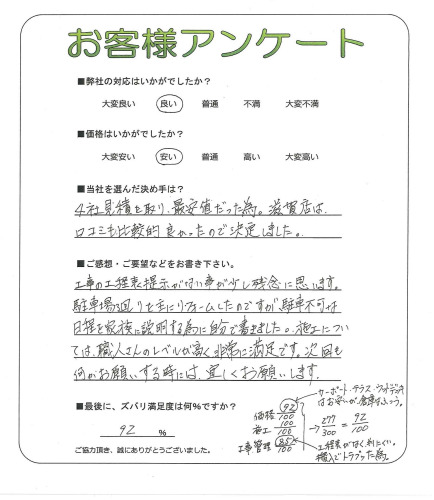 お客様アンケート
■弊社の対応はいかがでしたか?
大変良い 良い 普通 不満 大変不満
■価格はいかがでしたか?
大変安い 安い 普通 高い 大変高い
■当社を選んだ決め手は?
4社見積を取り、最安値だった為。滋賀店は、
口コミも比較的良かったので決定しました。
■ご感想・ご要望などをお書き下さい。
工事の工程表提示がない事が少し残念に思います。
駐車場廻りを主にリフォームしたのですが駐車不可な
日程を家族に説明する為に自分で書きました。施工につい
ては、職人さんのレベルが高く非常に満足です。次回も
何かお願いする時には、宜しくお願いします。
■最後に、ズバリ満足度は何%ですか?
92 %
ご協力頂き、誠にありがとうございました。
カーポート・テラス・ウッドデッキ
はお安いが
価格 92/100
施工 100/100
工事管理 85/100
→ 277/300 = 92/100
工程表がなく判りにくい。
搬入でトラブった為。